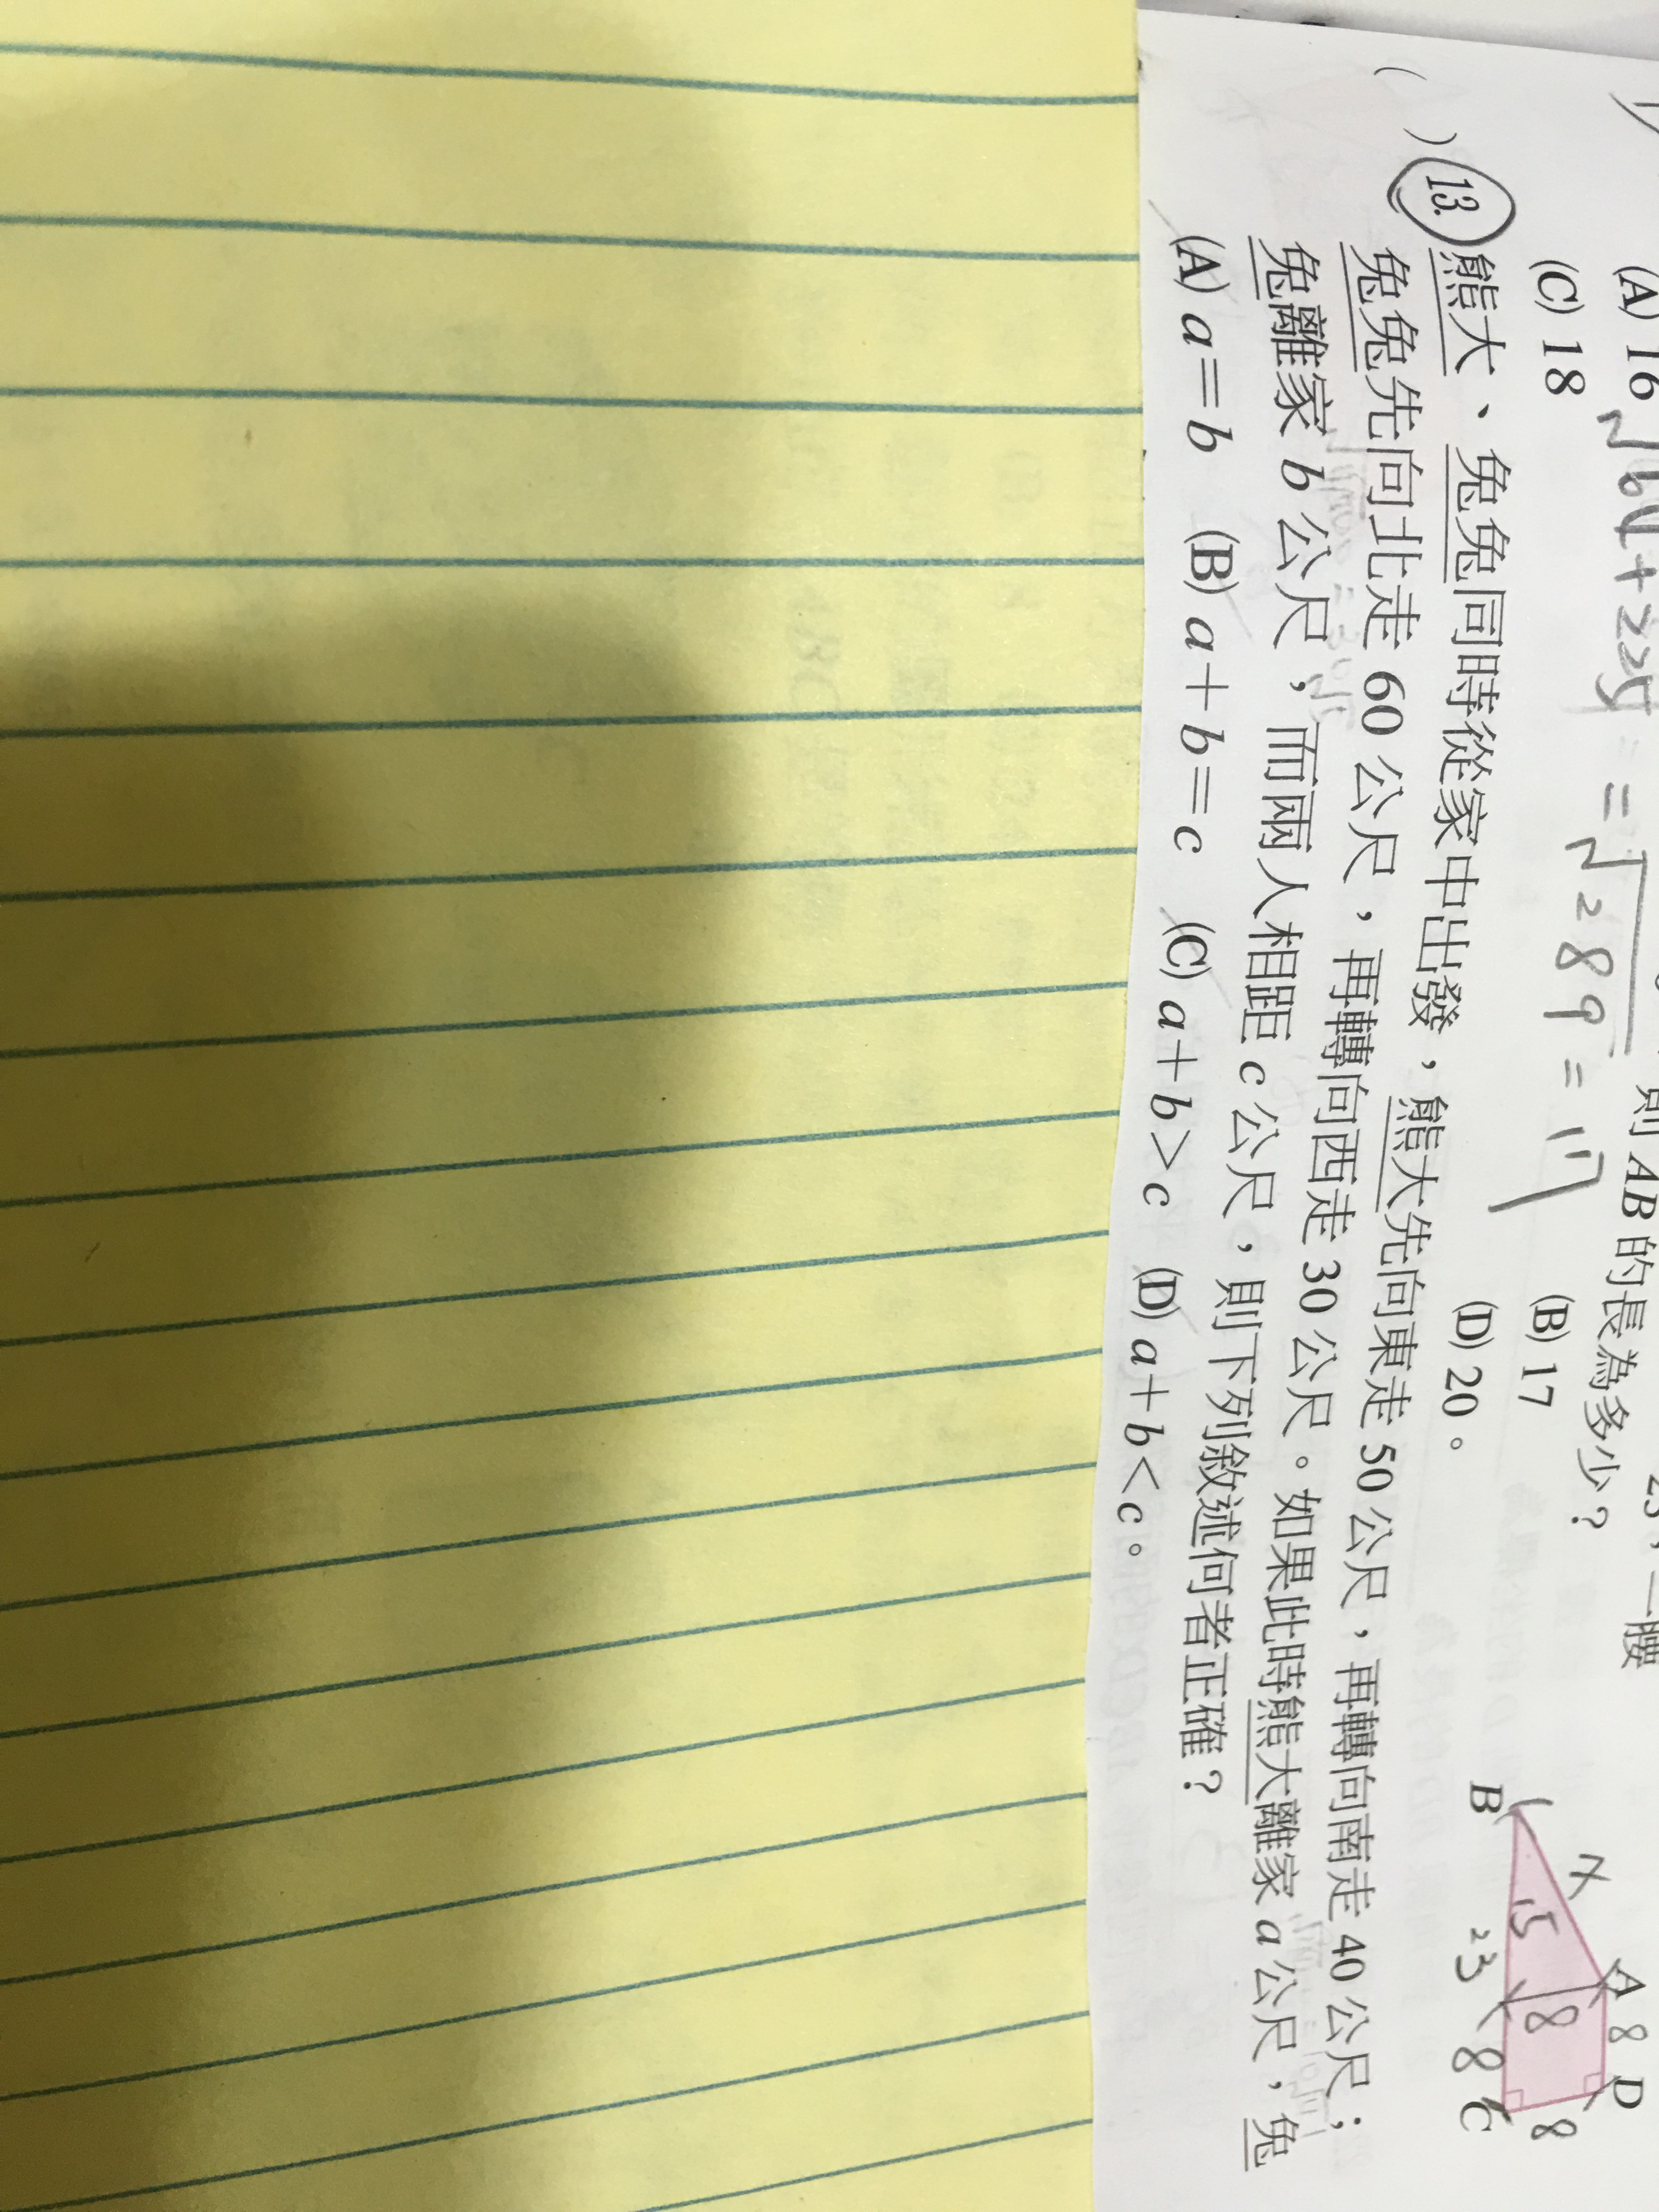 則 AB 的長為多少？
(A) 16 (B) 17
(C) 18 (D) 20。
= √289 = 17
B A D C
x 15 8 8 8 23 8
( ) 13. 熊大、兔兔同時從家中出發，熊大先向東走 50 公尺，再轉向南走 40 公尺；
兔兔先向北走 60 公尺，再轉向西走 30 公尺。如果此時熊大離家 a 公尺，兔
兔離家 b 公尺，而兩人相距 c 公尺，則下列敘述何者正確？
(A) a＝b (B) a＋b＝c (C) a＋b＞c (D) a＋b＜c。